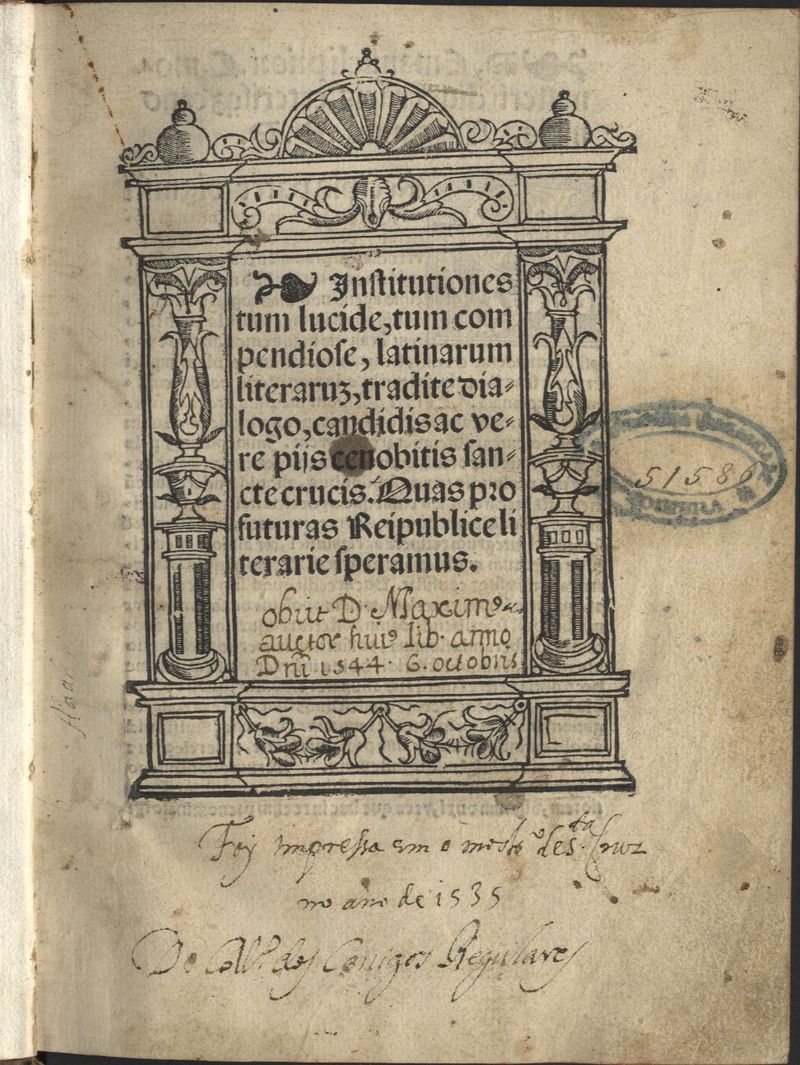 ❧ Inſtitutiones
tum lucide, tum com
pendioſe, latinarum
literaruꝫ, tradite dia⸗
logo, candidis ac ve⸗
re pijs cenobitis ſan⸗
cte crucis. Quas pro
futuras Reipublice li
terarie ſperamus.
obijt D. Maximꝰ
auctor huiꝰ lib. anno
Dñi 1544. 6. octobris
51586
Foy Impressa em o mostrº de S.ta Cruz
no ano de 1535
Do Colº. dos Conigos Regulares